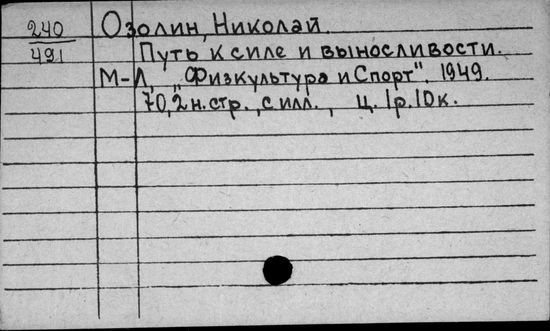 240 Озолин, Николай.
491 Путь к силе и выносливости.
М-Л, „Физкультура и Спорт". 1949.
70,2 н. стр., с илл., ц. 1р. 10к.